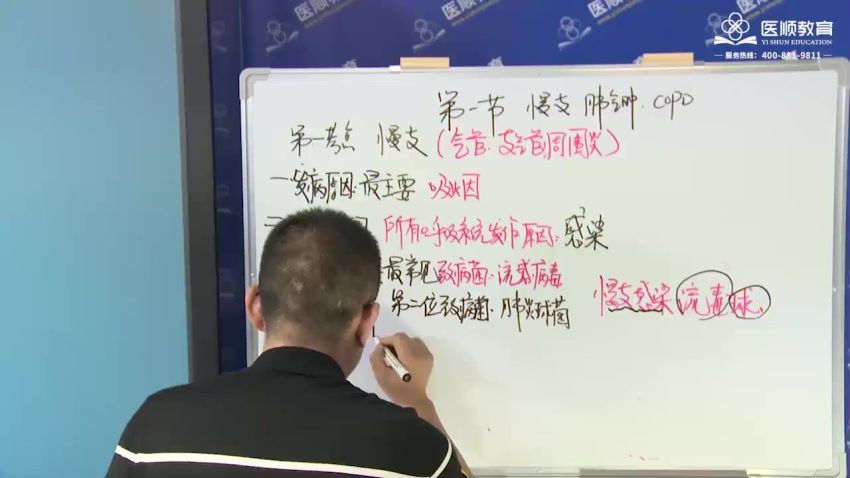 医顺教育
YI SHUN EDUCATION
服务热线：400-861-9811
第一节 慢支 肺气肿. COPD
第一考点 慢支 (气管.支气管周围炎)
一 发病原因.最主要 吸烟
二 所有呼吸系统发作原因: 感染
最常见致病菌:流感病毒
第二位致病菌.肺炎球菌
慢支感染 流毒球.